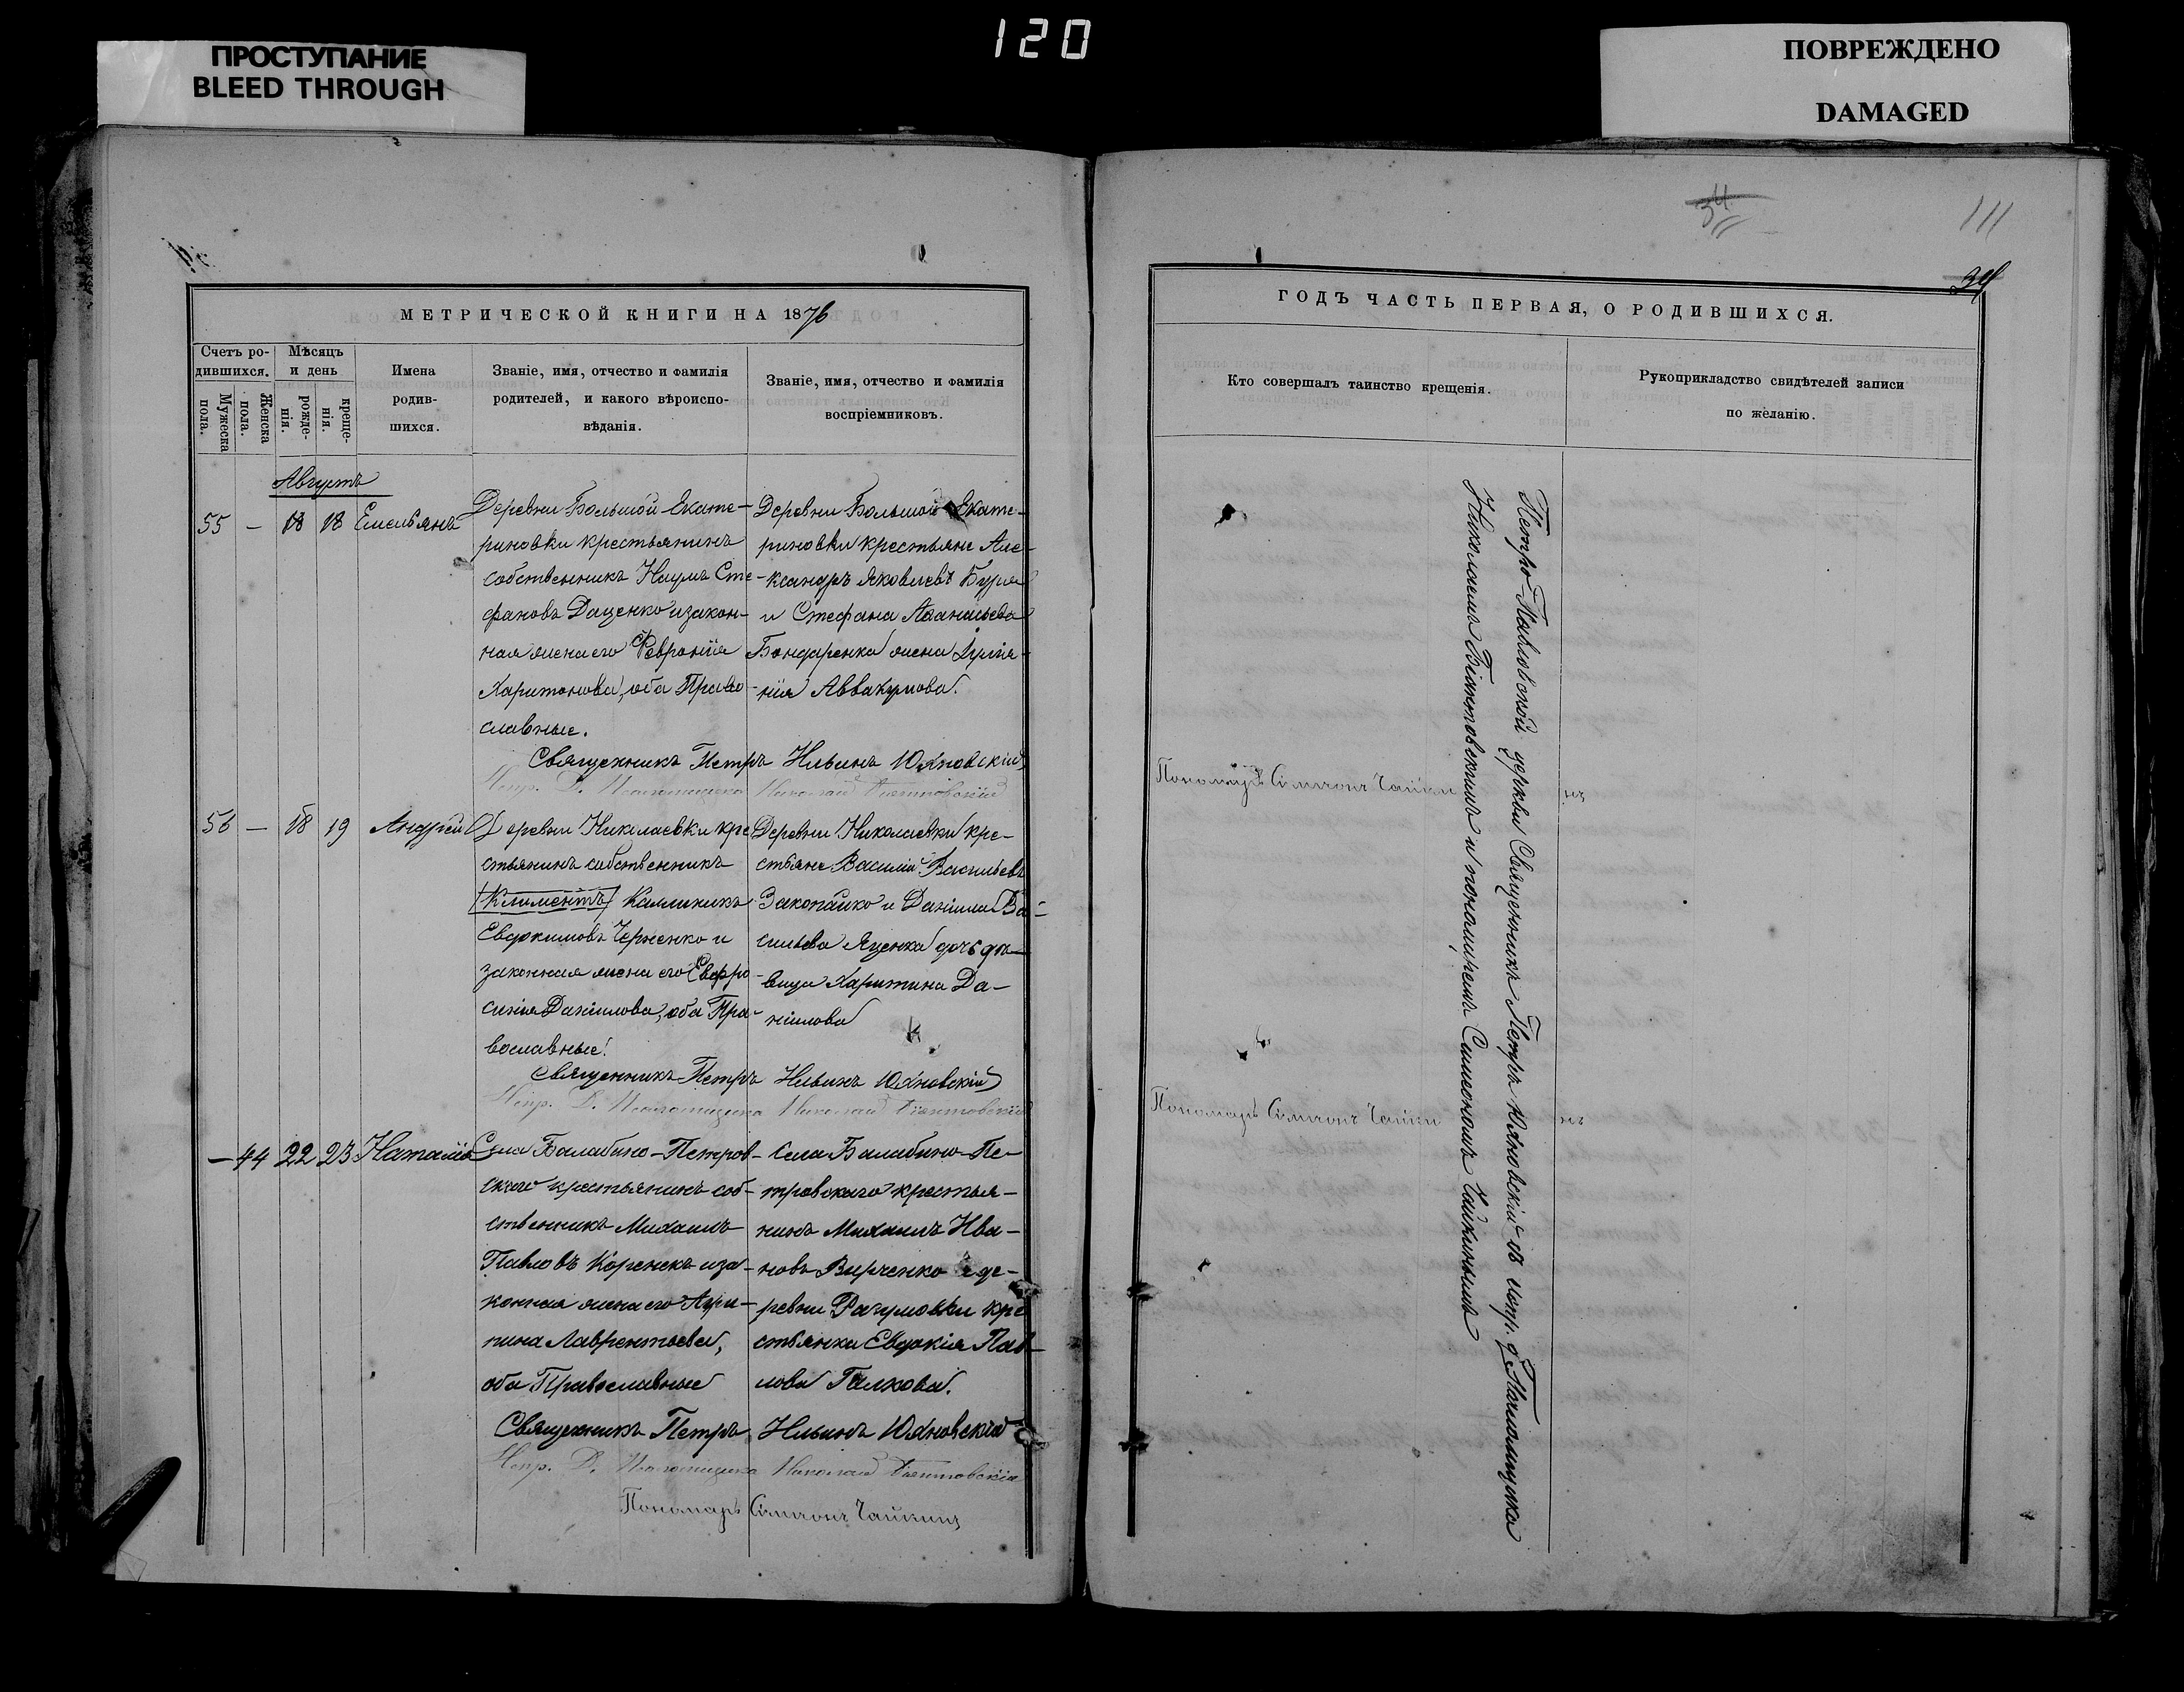 120
ПРОСТУПАНИЕ
BLEED THROUGH
ПОВРЕЖДЕНО
DAMAGED
34
111
34
МЕТРИЧЕСКОЙ КНИГИ НА 1876
Счетъ ро-
дившихся.
Мужеска
пола.
Женска
пола.
Мѣсяцъ
и день
рожде-
нія.
креще-
нія.
Имена
родив-
шихся.
Званіе, имя, отчество и фамилія
родителей, и какого вѣроиспо-
вѣданія.
Званіе, имя, отчество и фамилія
воспріемниковъ.
Августъ
55 — 18 18 Емельянъ
Деревни Большой Екате-
риновки крестьянинъ
собственникъ Наумъ Сте-
фановъ Даценко и закон-
ная жена его Феврония
Харитонова, оба Право-
славные.
Деревни Большой Екате-
риновки крестьяне Але-
ксандръ Яковлевъ Буря
и Стефана Афанасьева
Бондаренка жена
Аввакумова.
Священникъ Петръ Ильинъ Юхновскій
Испр. Д. Псаломщика Николай
56 — 18 19 Андрей
Деревни Николаевки кре
стьянинъ собственникъ
(Климентъ) Каллиникъ
Евдокимовъ Черненко и
законная жена его Евфро-
синія Даніилова, оба Пра-
вославные.
Деревни Николаевки кре-
стьяне Василій Васильевъ
Закопайко и Даніила Ва-
сильева Яценка дочь дѣ-
вица Харитина Да-
ніилова
Священникъ Петръ Ильинъ Юхновскій
Испр. Д. Псаломщика Николай
— 44 22 23 Наталія
Села Балабино-Петров-
скаго крестьянинъ соб-
ственникъ Михаилъ
Павловъ Коренекъ и за-
конная жена его Агри-
пина Лаврентьева,
оба Православные
Села Балабино-Пе-
тровскаго крестья-
нинъ Михаилъ Ива-
новъ Вирченко и де-
ревни Разумовки кре
стьянка Евдокія Пав-
лова Галкова.
Священникъ Петръ Ильинъ Юхновскій
Испр. Д. Псаломщика Николай
Пономарь Симеонъ Чайкинъ
ГОДЪ ЧАСТЬ ПЕРВАЯ, О РОДИВШИХСЯ.
Кто совершалъ таинство крещенія.
Рукоприкладство свидѣтелей записи
по желанію.
Петро-Павловской церкви Священникъ Петръ Юхновскій съ испр. д. Псаломщика
Николаемъ и пономаремъ Симеономъ Чайкинымъ
Пономарь Симеонъ Чайкинъ
Пономарь Симеонъ Чайкинъ